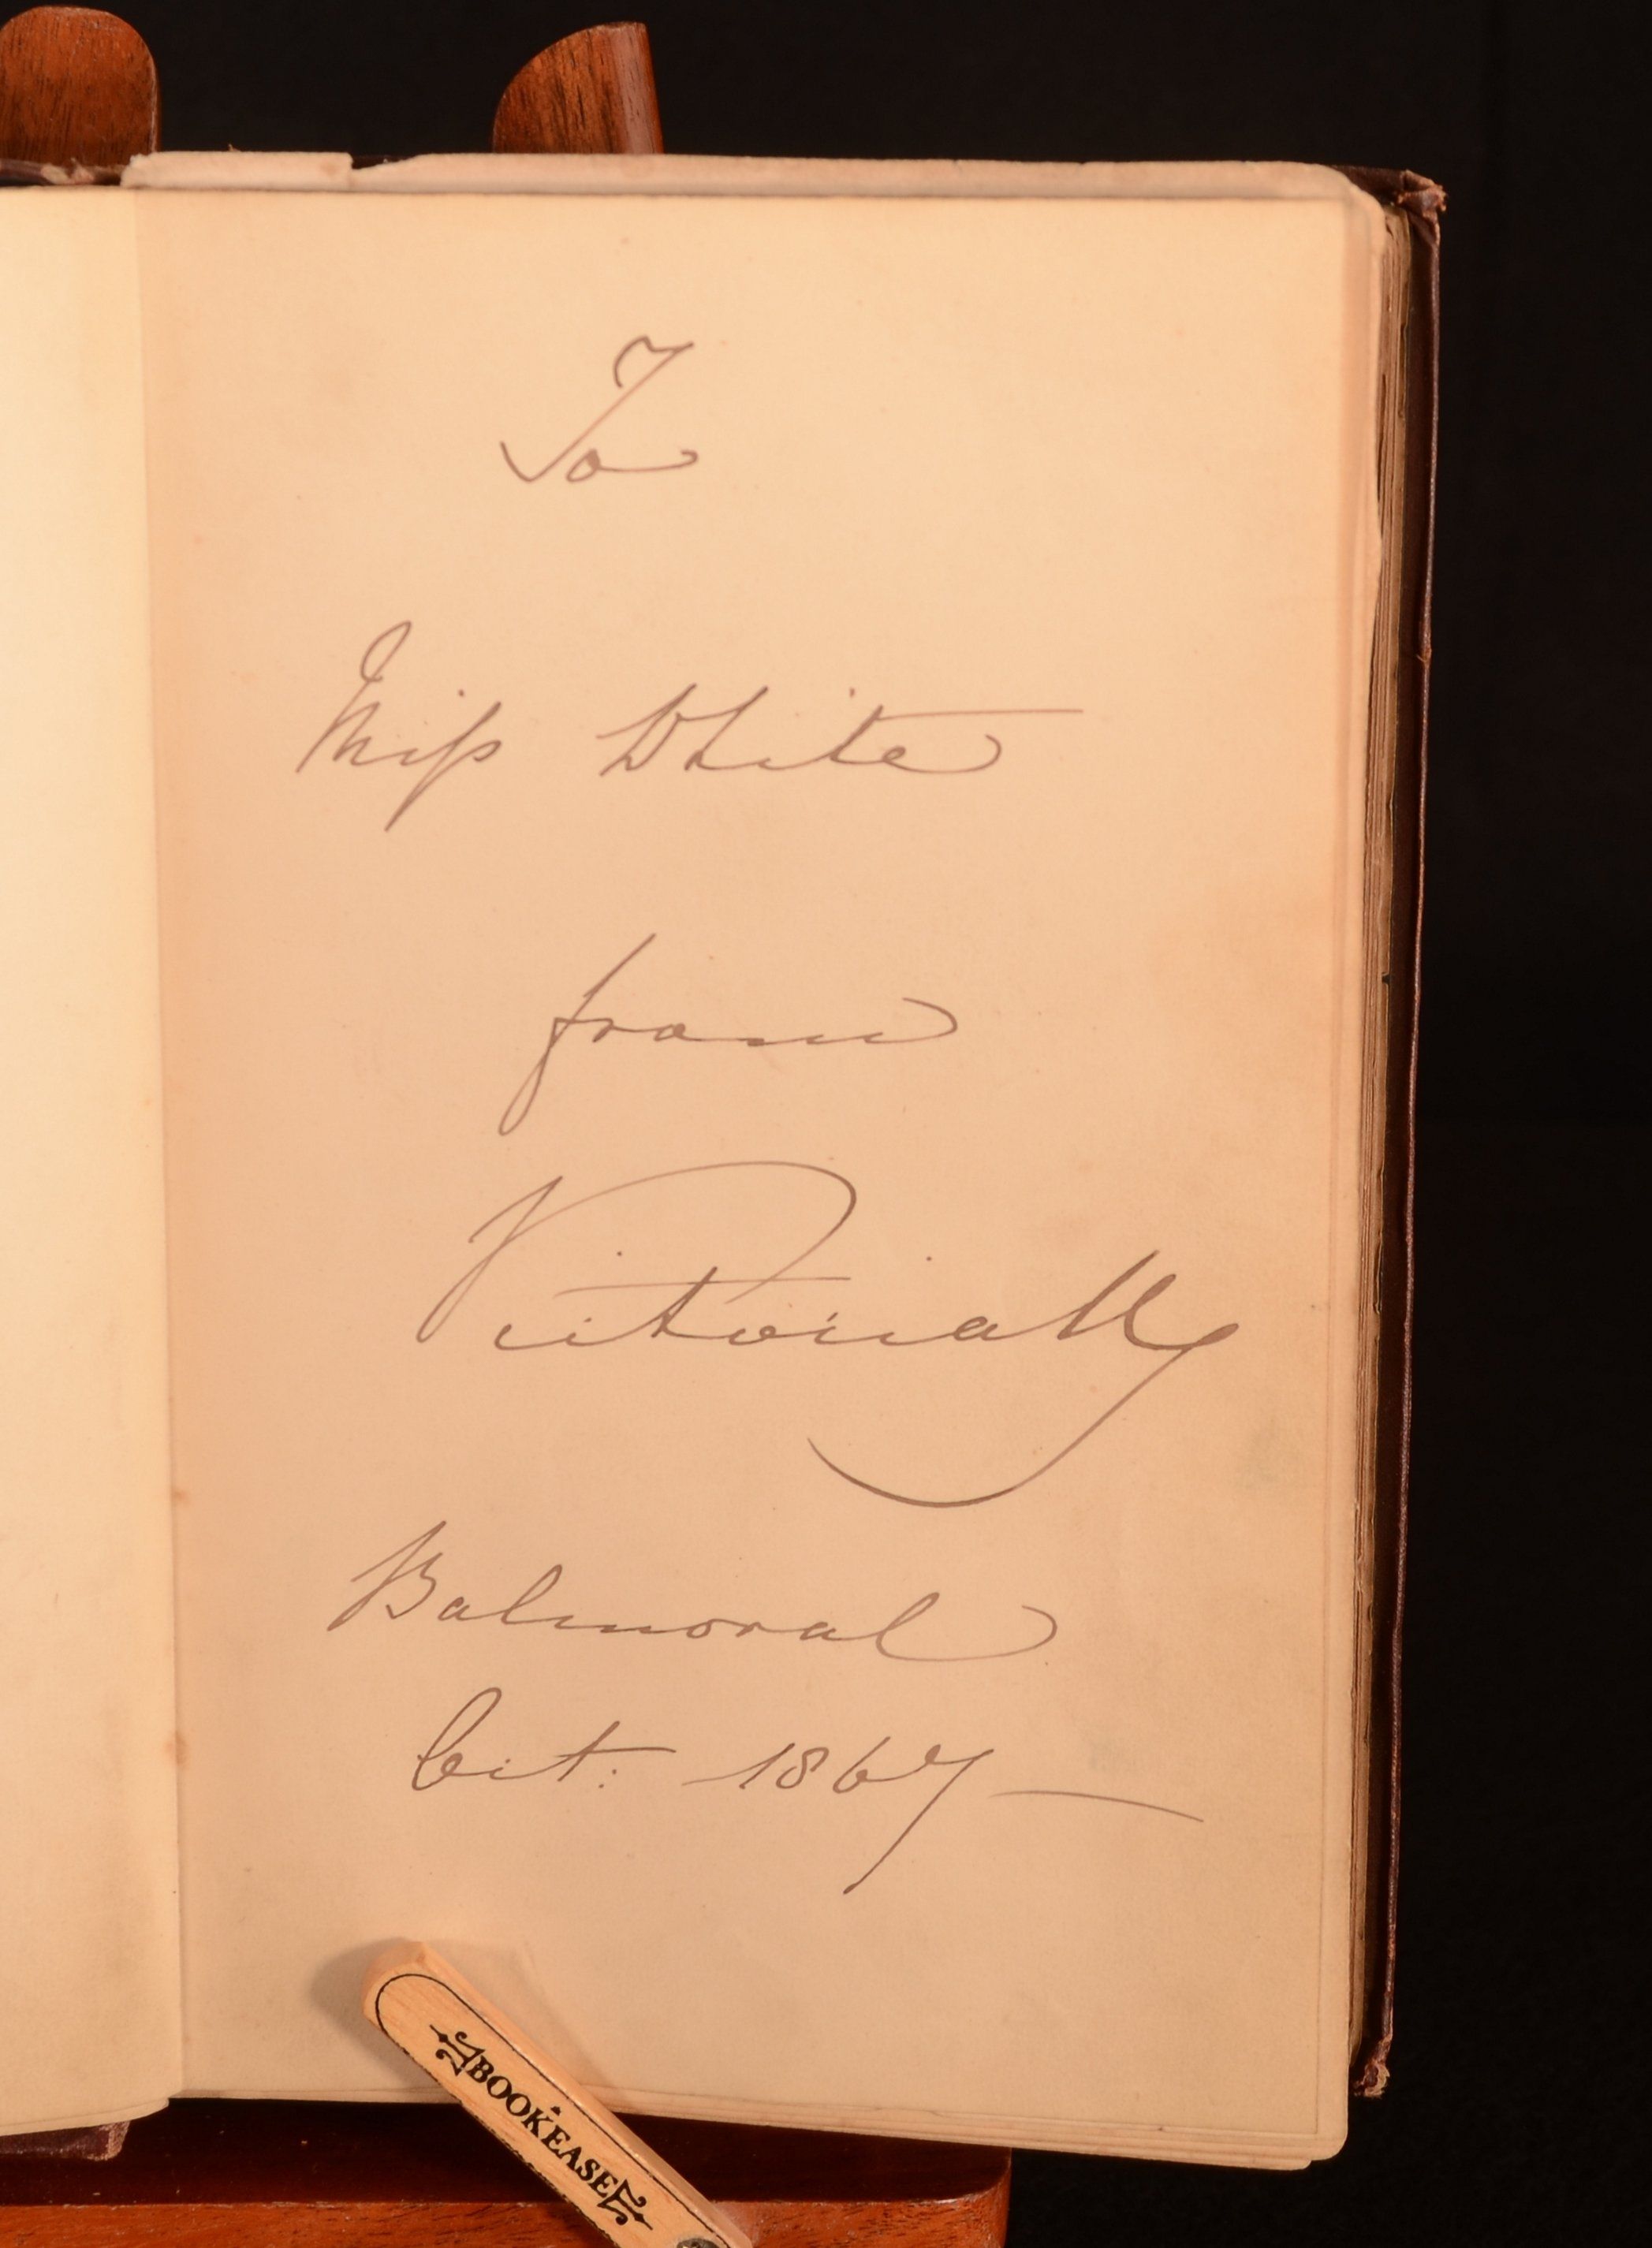 To
Miss White
from
Victoria R
Balmoral
Oct: 1867 —
BOOKEASE